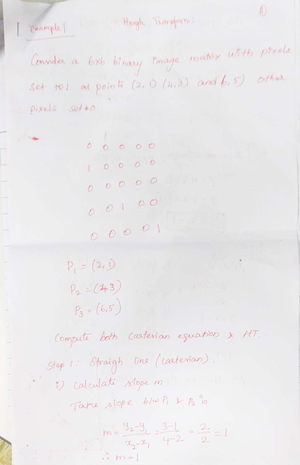 Example 1
Hough Transform.
Consider a 6x6 binary image matrix with pixels
set to 1 at points (2,1) (4,3) and (6,5) other
pixels set to 0
0 0 0 0 0
1 0 0 0 0
0 0 0 0 0
0 0 1 0 0
0 0 0 0 1
P₁ = (2,1)
P₂ = (4,3)
P₃ = (6,5)
Compute both Casterian equation & HT
Step 1: Straigh line (casterian)
i) Calculate slope m
Take slope b/w P₁ & P₂
m = y₂-y₁/x₂-x₁ = 3-1/4-2 = 2/2 = 1
∴ m=1